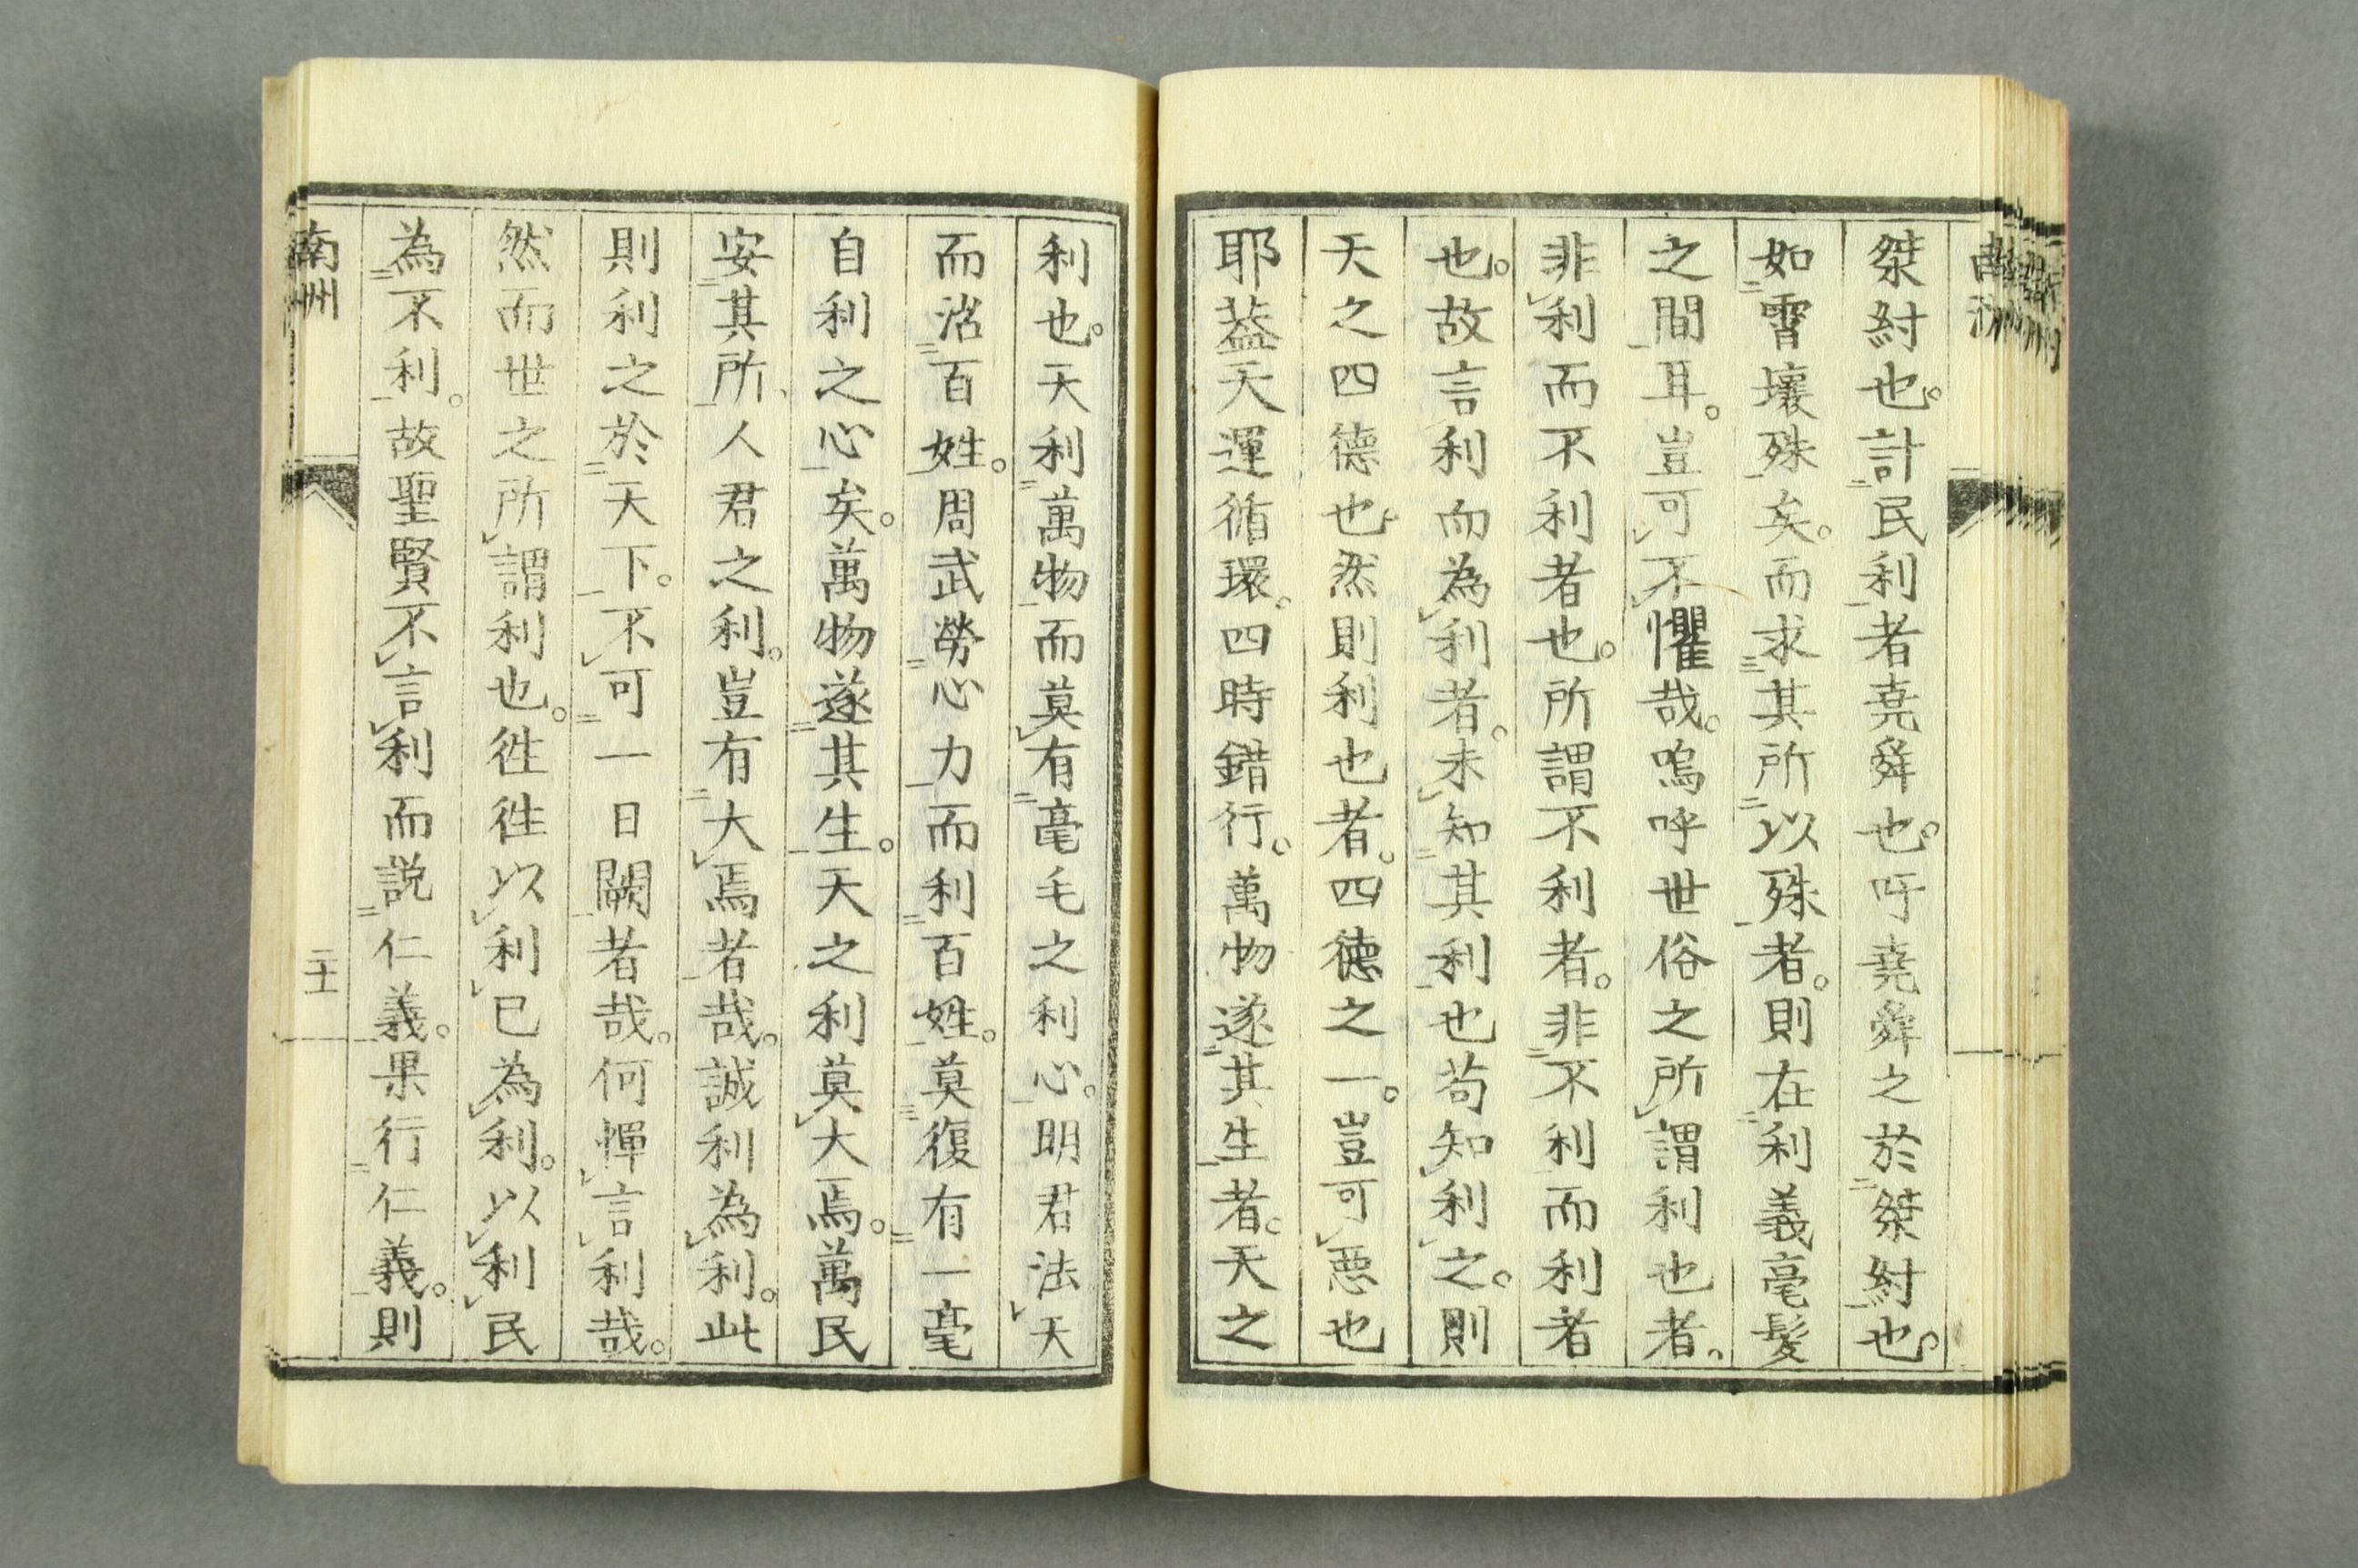 桀紂也。計民利者堯舜也。吁堯舜之於桀紂也。
如霄壤殊矣。而求其所以殊者。則在利義毫髮
之間耳。豈可不懼哉。嗚呼世俗之所謂利也者。
非利而不利者也。所謂不利者。非不利而利者
也。故言利而為利者。未知其利也苟知利之。則
天之四德也。然則利也者。四德之一。豈可惡也
耶葢天運循環。四時錯行。萬物遂其生者。天之
利也。天利萬物而莫有毫毛之利心。明君法天
而治百姓。周武勞心力而利百姓。莫復有一毫
自利之心矣。萬物遂其生。天之利莫大焉。萬民
安其所、人君之利。豈有大焉者哉。誠利為利。此
則利之於天下。不可一日闕者哉。何憚言利哉。
然而世之所謂利也。徃徃以利已為利。以利民
為不利。故聖賢不言利而説仁義。果行仁義。則
南州
二十